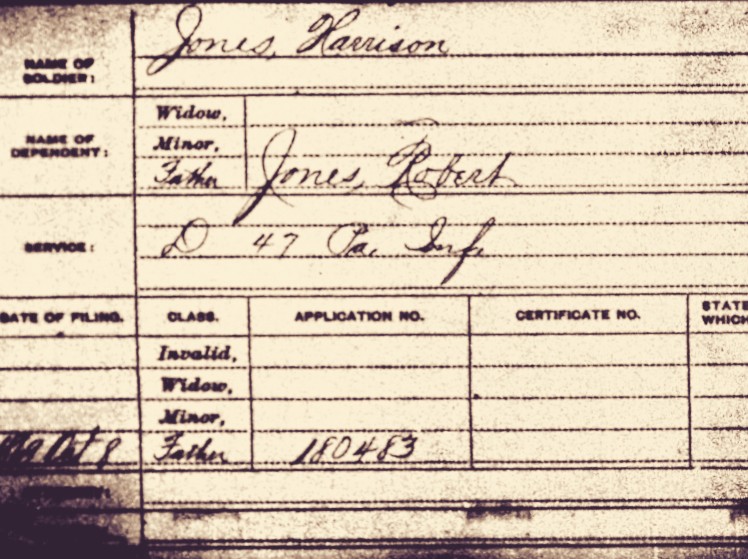 NAME OF SOLDIER: Jones, Harrison
NAME OF DEPENDENT:
Widow,
Minor,
Father Jones, Robert
SERVICE: D 47 Pa. Inf.
DATE OF FILING. CLASS. APPLICATION NO. CERTIFICATE NO. STATE WHICH
Invalid,
Widow,
Minor,
Father 180483